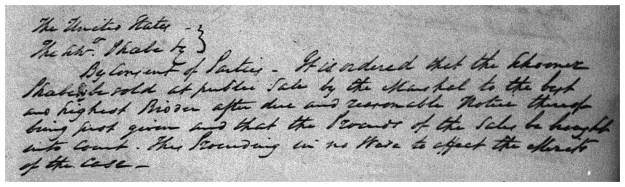 The United States
The Schr. Phabe &c }
By Consent of Parties - It is ordered that the Schooner
Phabe be sold at public Sale by the Marshal to the best
and highest Bidder after due and reasonable Notice thereof
being first given and that the Proceeds of the Sale be brought
into Court. This Proceeding in no wave to affect the Merits
of the Case -